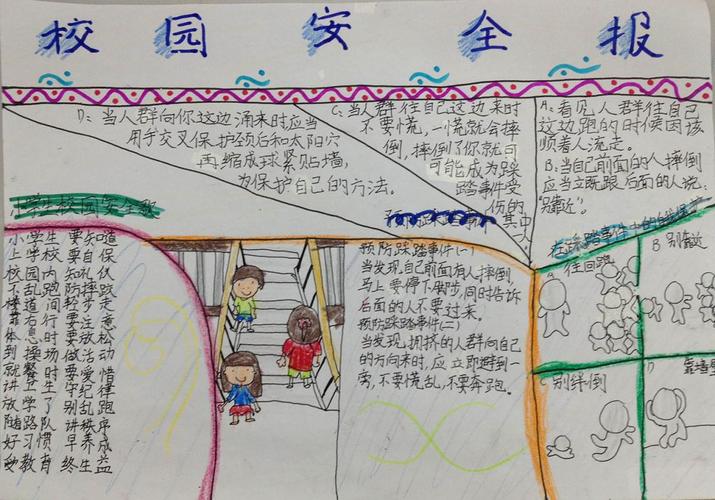 校园安全报
D：当人群向你这边涌来时应当
用手交叉保护颈后和太阳穴
再缩成球紧贴墙，
为保护自己的方法。
C：当人群往自己这边来时
不要慌，一慌就会摔
倒，摔倒了你就可
可能成为踩
踏事件受
伤的其中
人
A：看见人群往自己
这边跑的时候因该
顺着人流走。
B：当自己前面的人摔倒
应当立既跟后面的人说：
“别靠近”。
小学生校园安全歌
小学生 要知道
上学校 要自保
校园内 知礼仪
不乱跑 防摔跤
楼道间 轻步走
靠右行 要注意
体息时 要放松
到操场 做活动
就餐时 要爱惜
讲卫生 守纪律
放学了 别乱跑
随路队 讲秩序
好习惯 早养成
教育 终生益
预防踩踏事件(一)
当发现自己前面有人摔倒，
马上要停下脚步，同时告诉
后面的人不要过来。
预防踩踏事件(二)
当发现，拥挤的人群向自己
的方向来时，应立即避到一
旁，不要慌乱，不要奔跑。
在踩踏事件中的自我保护
A 往回跑
B 别靠近
C 别绊倒
D 靠墙